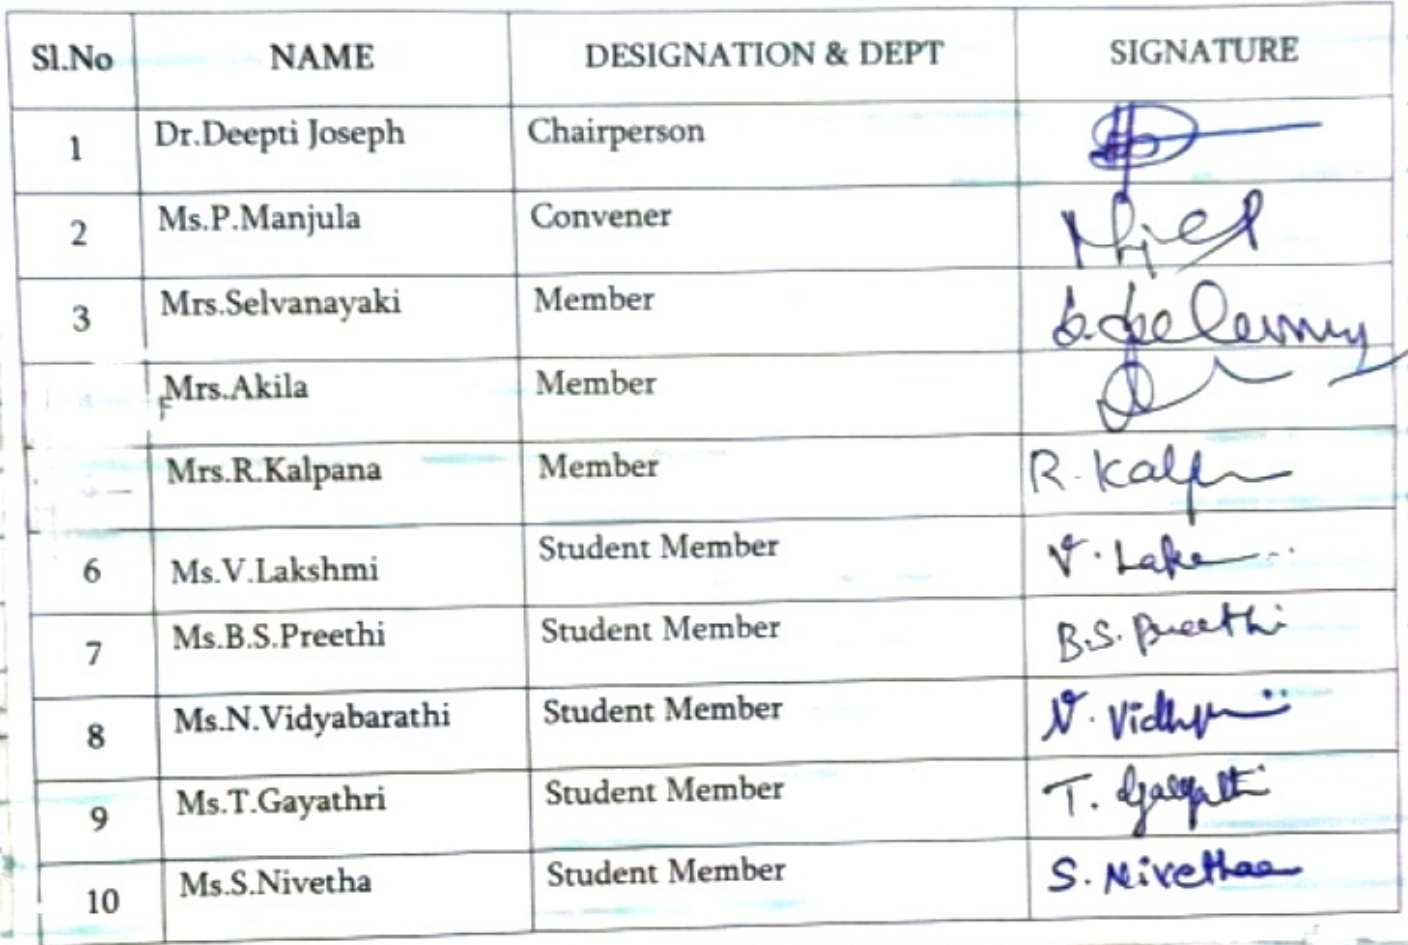 Sl.No NAME DESIGNATION & DEPT SIGNATURE
1 Dr.Deepti Joseph Chairperson
2 Ms.P.Manjula Convener
3 Mrs.Selvanayaki Member
Mrs.Akila Member
Mrs.R.Kalpana Member R.
6 Ms.V.Lakshmi Student Member V.
7 Ms.B.S.Preethi Student Member B.S. Preethi
8 Ms.N.Vidyabarathi Student Member N.
9 Ms.T.Gayathri Student Member T. Gayathri
10 Ms.S.Nivetha Student Member S. Nivethaa